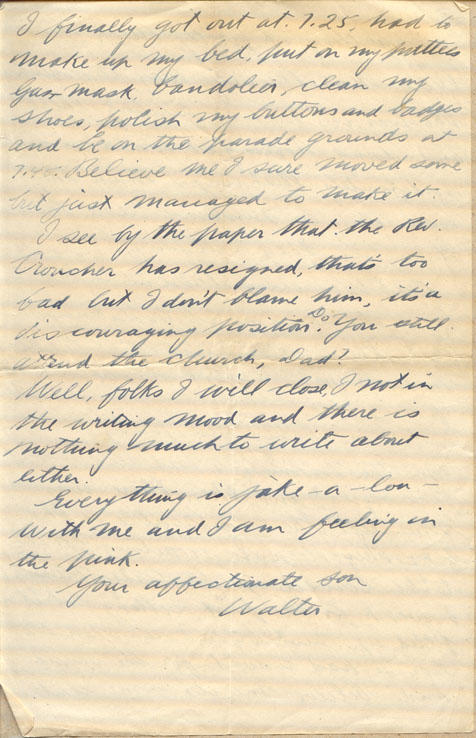 I finally got out at 7.25, had to
make up my bed, put on my puttees
Gas mask, bandolier, clean my
shoes, polish my buttons and badges
and be on the parade grounds at
7.45. Believe me I sure moved some
but just managed to make it.
I see by the paper that the Rev.
Croucher has resigned, that's too
bad but I don't blame him, it's a
discouraging position. Do you still
attend the church, Dad?
Well, folks I will close, I not in
the writing mood and there is
nothing much to write about
either.
Everything is jake-a-lou-
with me and I am feeling in
the pink.
Your affectionate son
Walter